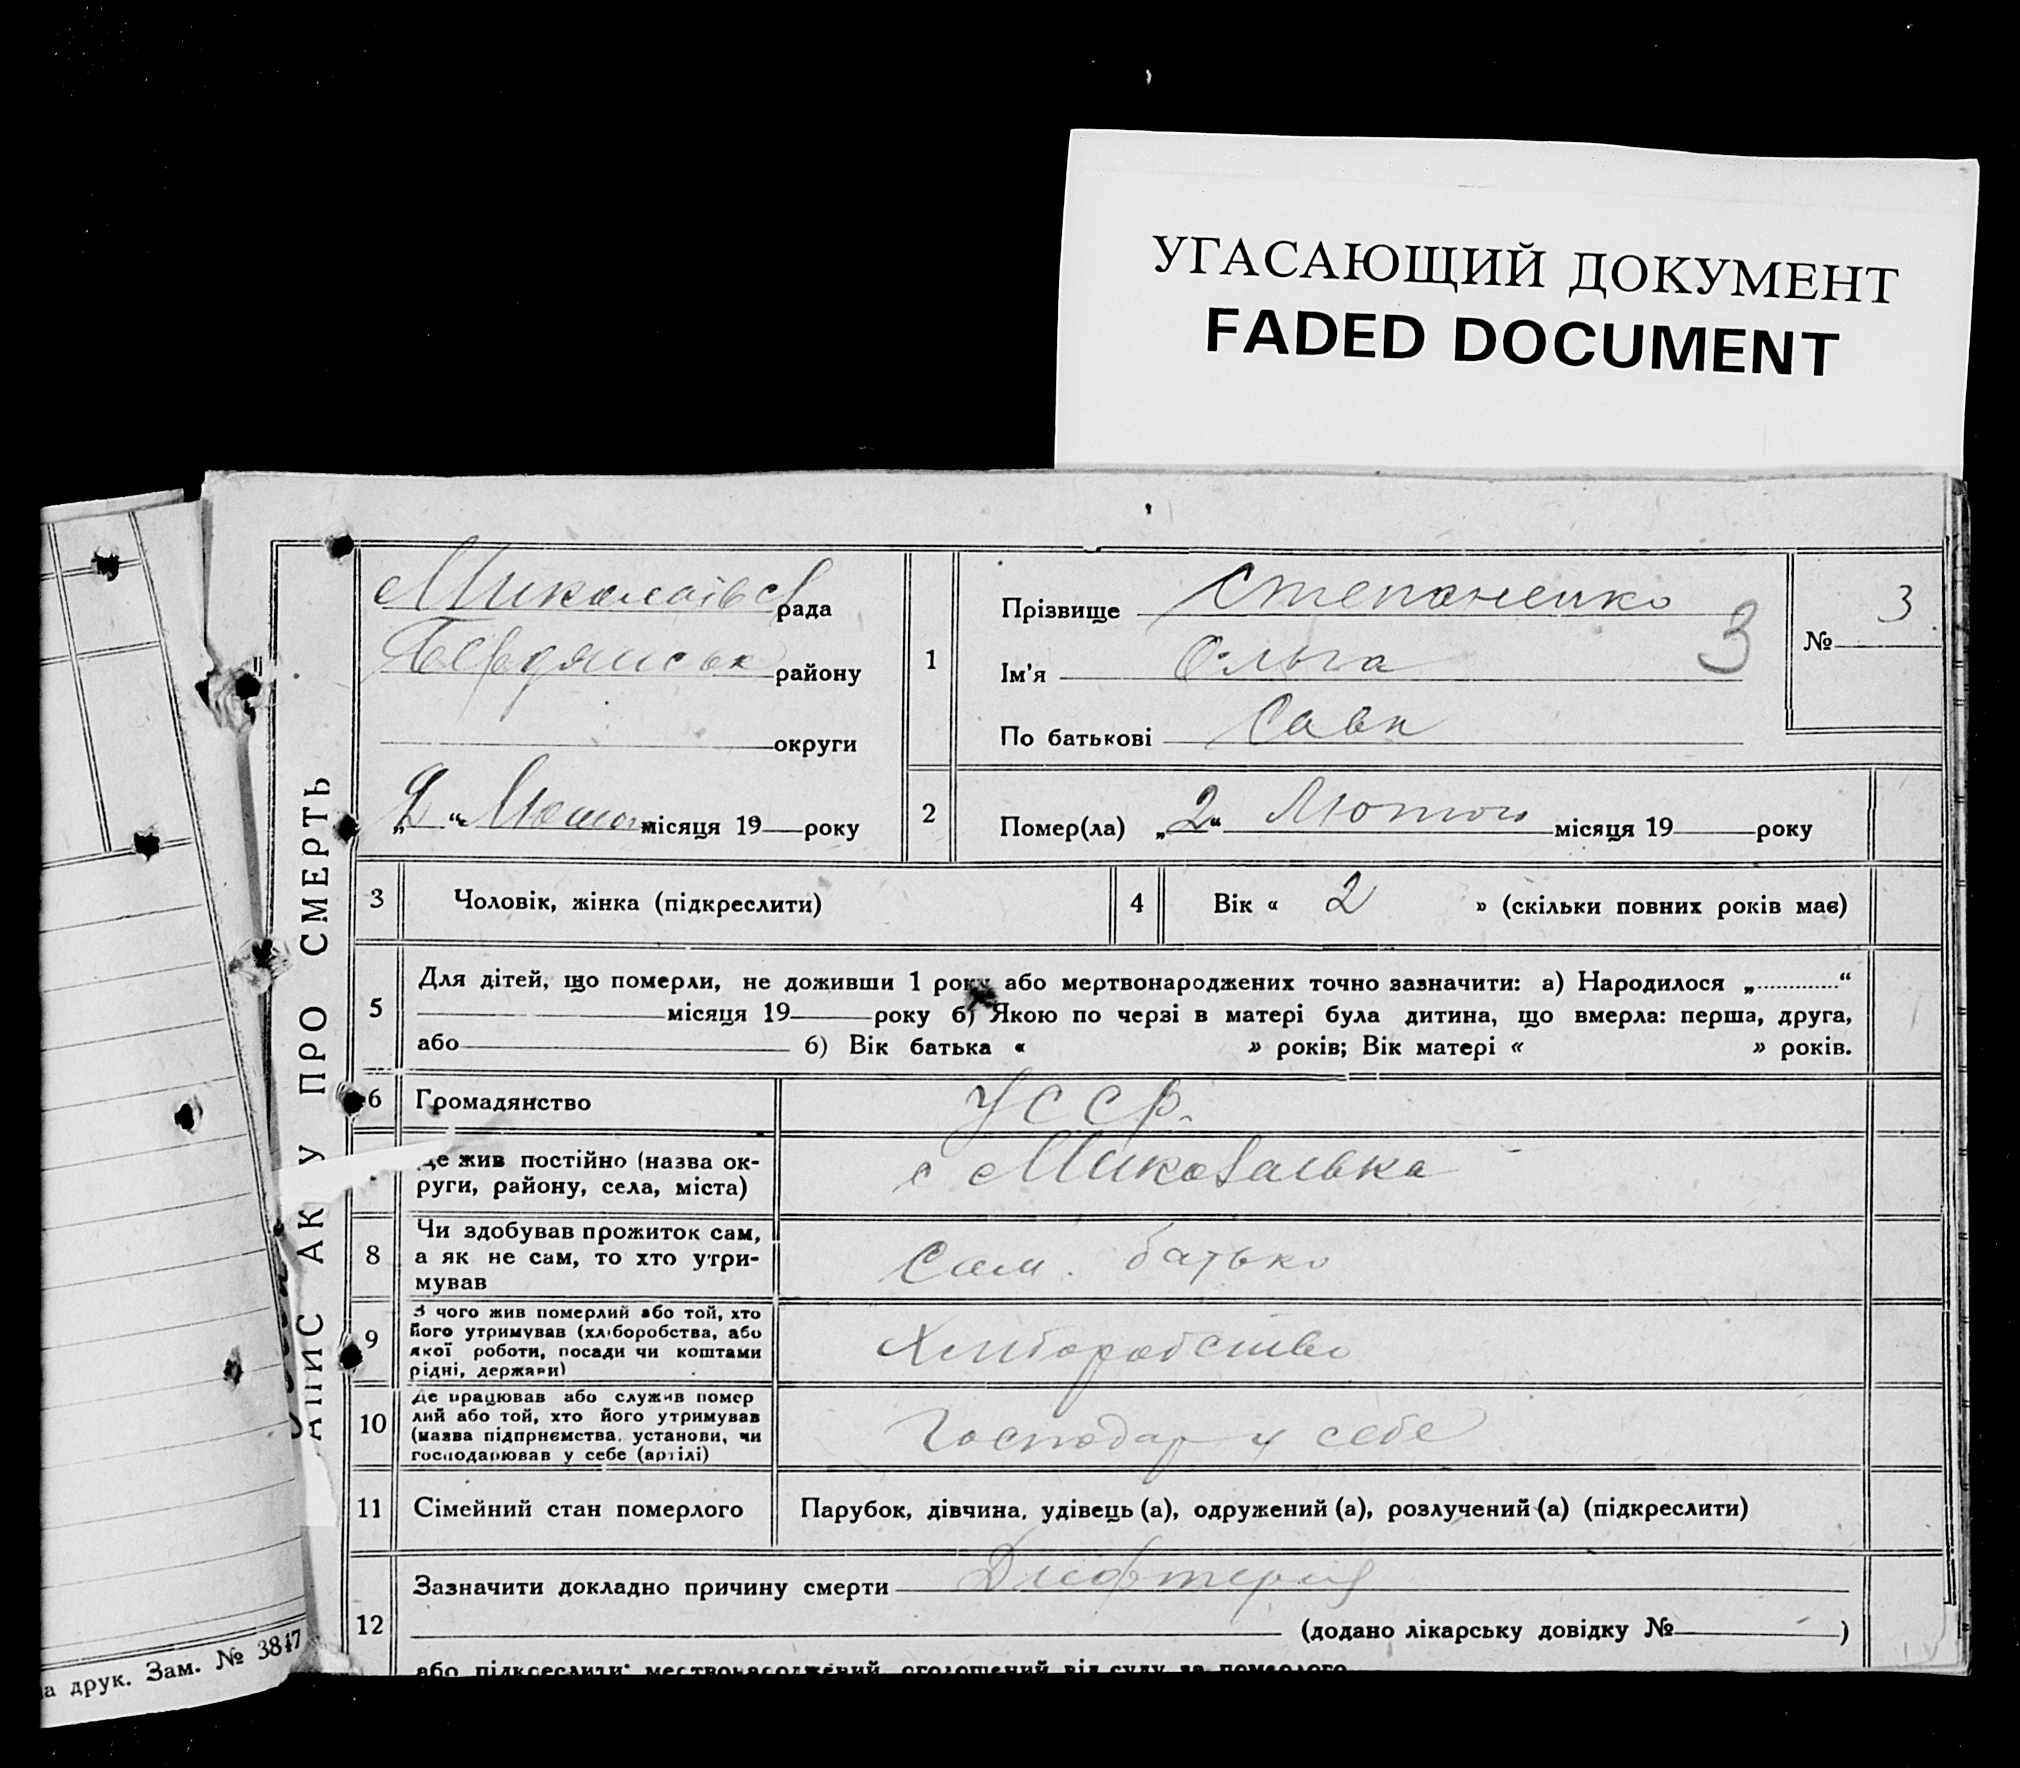 УГАСАЮЩИЙ ДОКУМЕНТ
FADED DOCUMENT
АПИС АК У ПРО СМЕРТЬ
Миколаївс рада
Бердянськ району
округи
„ “ Лютого місяця 19 року
1
Прізвище Степаненко
Ім'я Ольга 3
По батькові Савк
№ 3
2
Помер(ла) „2“ Лютого місяця 19 року
3
Чоловік, жінка (підкреслити)
4
Вік « 2 » (скільки повних років має)
5
Для дітей, що померли, не доживши 1 року або мертвонароджених точно зазначити: а) Народилося „ “
місяця 19 року б) Якою по черзі в матері була дитина, що вмерла: перша, друга,
або б) Вік батька « » років; Вік матері « » років.
6
Громадянство
УССР.
Де жив постійно (назва ок-
руги, району, села, міста)
с Миколаївка
8
Чи здобував прожиток сам,
а як не сам, то хто утри-
мував
Сам. батько
9
З чого жив померлий або той, хто
його утримував (хліборобства, або
якої роботи, посади чи коштами
рідні, держави)
Хліборобство
10
Де працював або служив помер
лий або той, хто його утримував
(назва підприємства, установи, чи
господарював у себе (артілі)
Господар у себе
11
Сімейний стан померлого
Парубок, дівчина, удівець (а), одружений (а), розлучений (а) (підкреслити)
12
Зазначити докладно причину смерти Дифтерия
(додано лікарську довідку № )
або підкреслити: мертвонароджений, оголошений від суду за померлого
а друк. Зам. № 3847